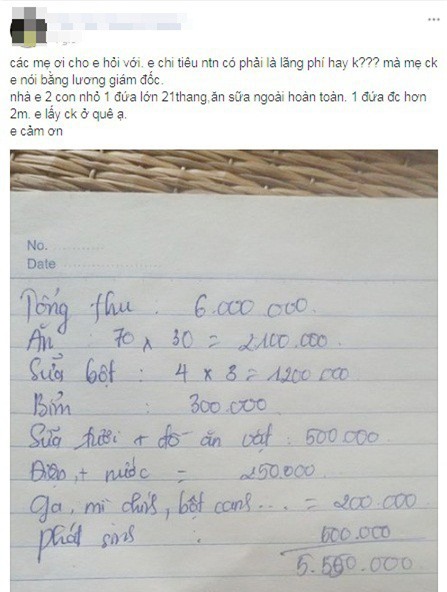 các mẹ ơi cho e hỏi với. e chi tiêu ntn có phải là lãng phí hay k??? mà mẹ ck
e nói bằng lương giám đốc.
nhà e 2 con nhỏ 1 đứa lớn 21thang,ăn sữa ngoài hoàn toàn. 1 đứa đc hơn
2m. e lấy ck ở quê ạ.
e cảm ơn
No. ............
Date ............
Tổng thu : 6.000.000.
Ăn : 70 x 30 = 2100.000.
Sữa bột : 4 x 3 = 1200.000
Bỉm : 300.000
Sữa tươi + đồ ăn vặt : 500.000
Điện + nước = 250.000
Ga, mì chính, bột canh ... = 200.000
phát sinh : 500.000
5.550.000